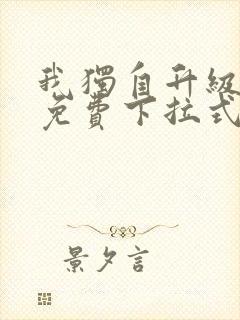 我獨自升級
免費下拉式
景夕言